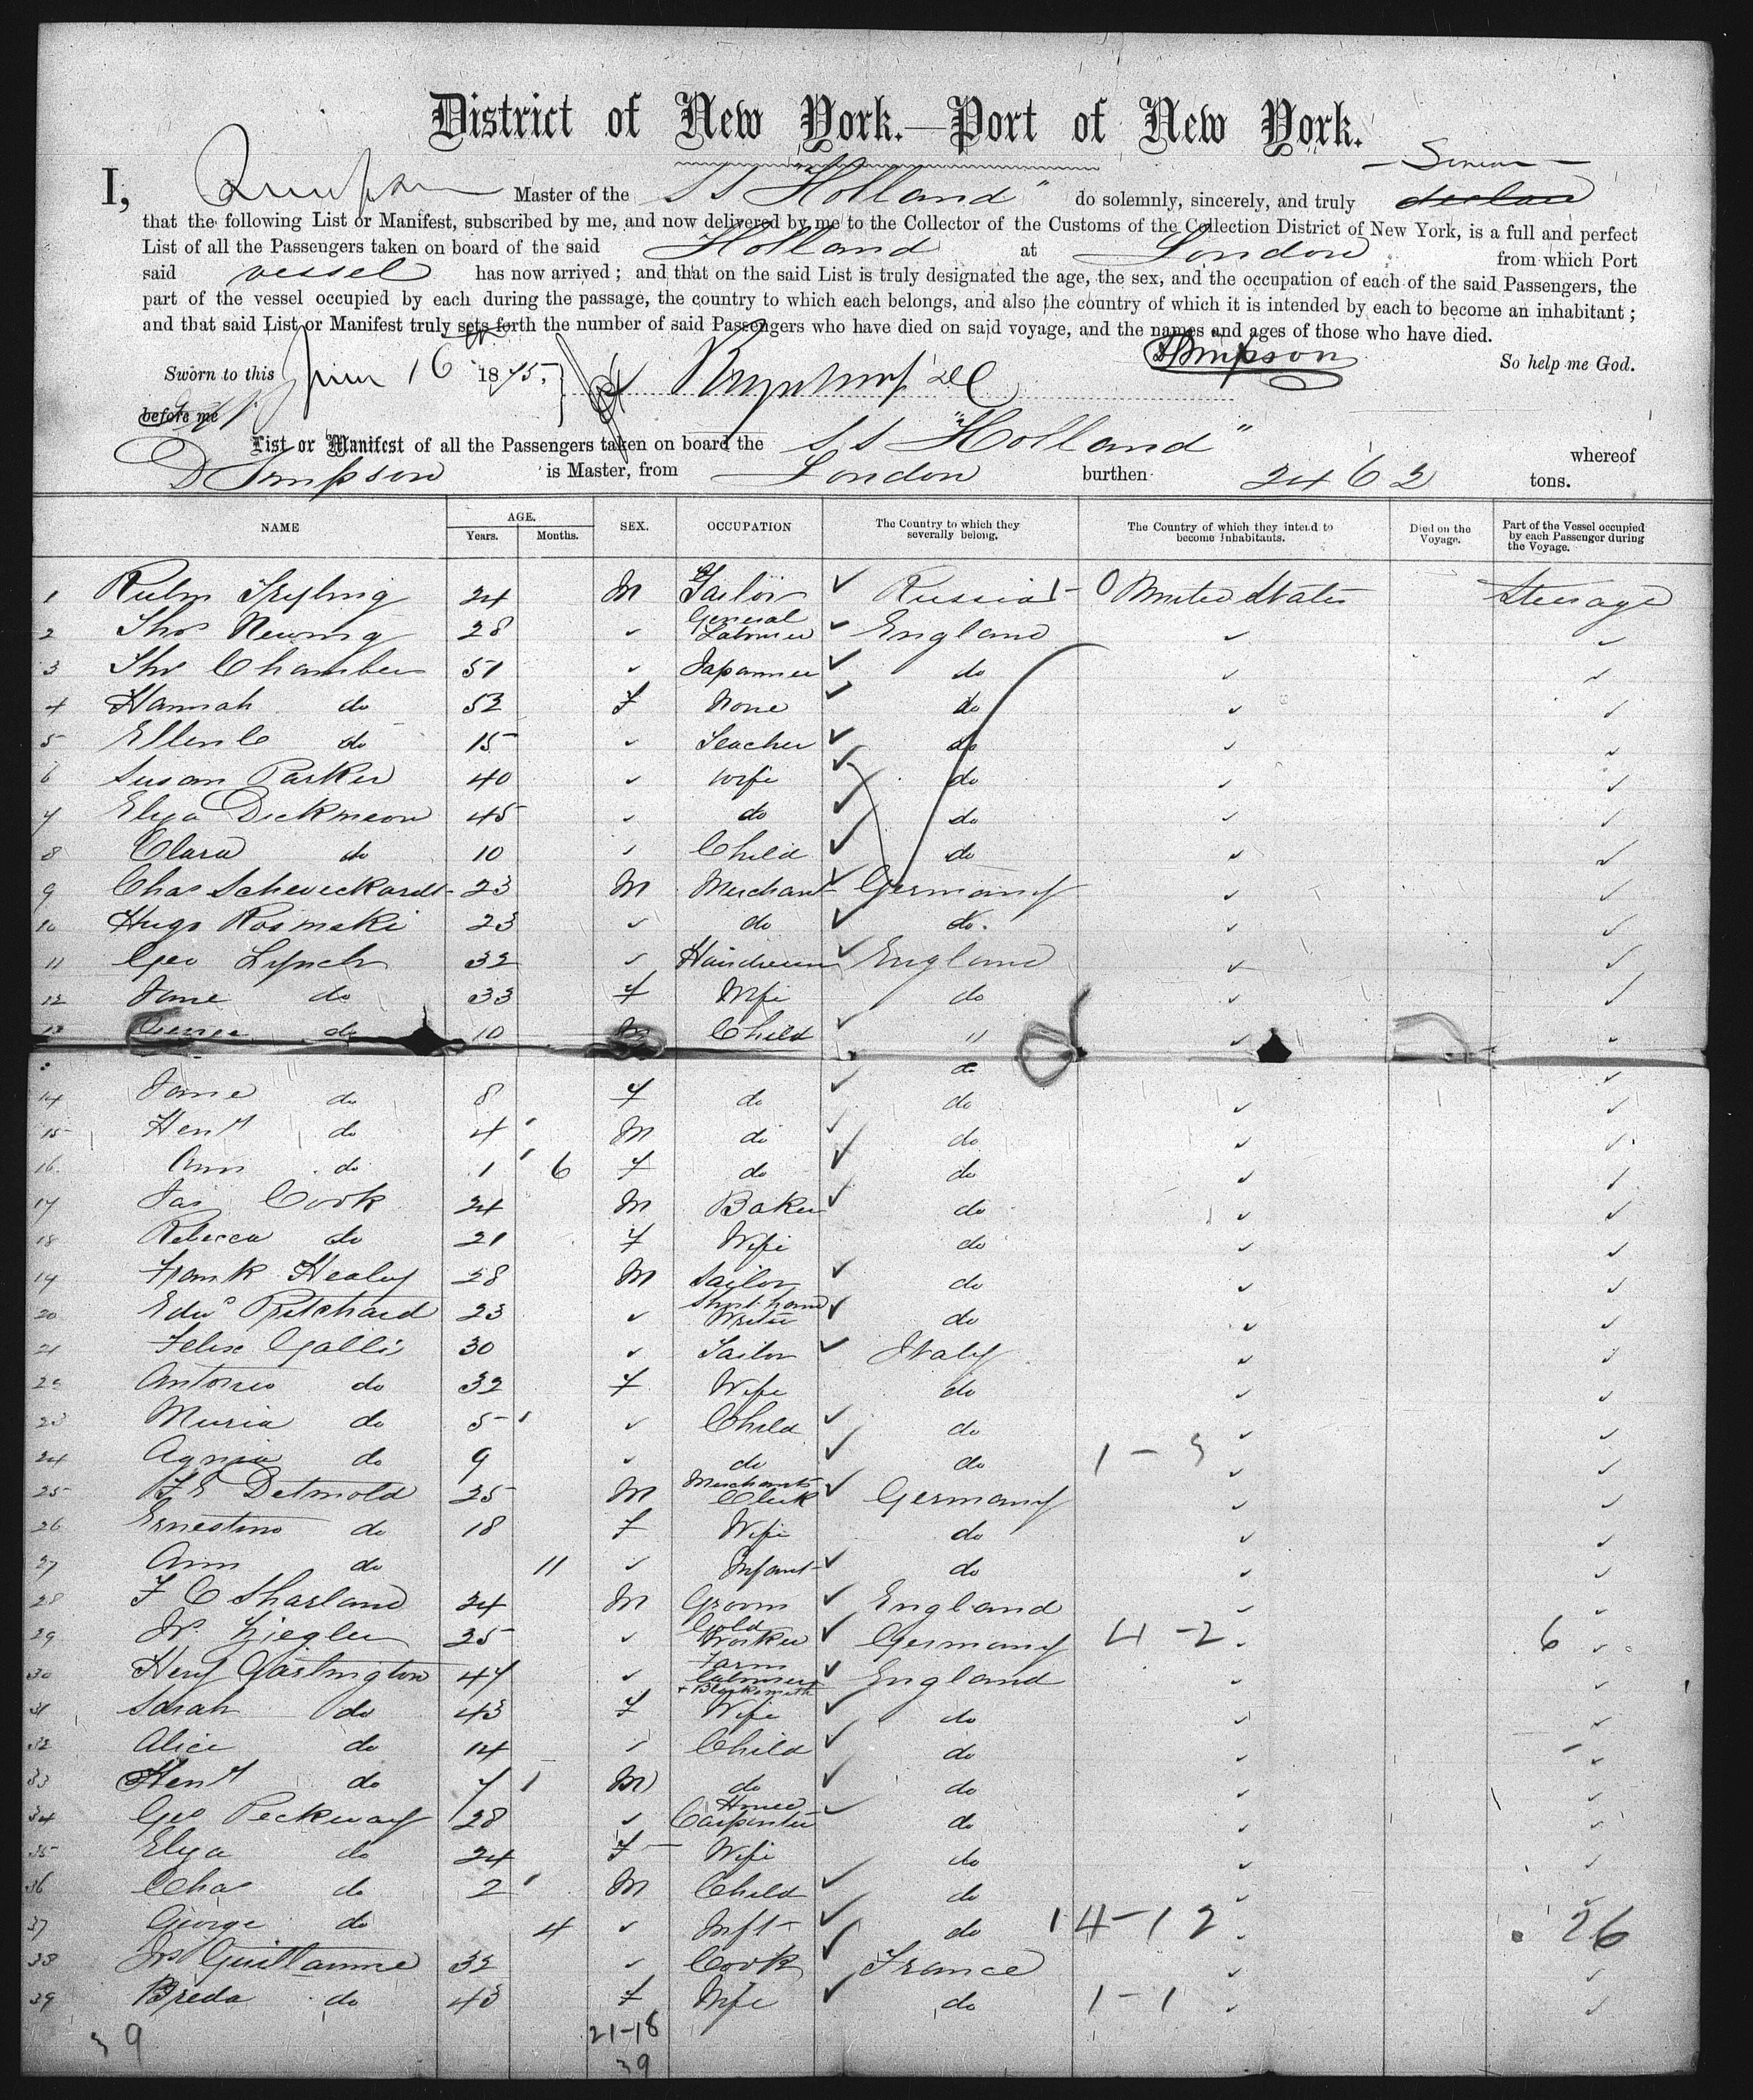 District of New York.—Port of New York.
I, Simpson Master of the SS "Holland" do solemnly, sincerely, and truly declare
that the following List or Manifest, subscribed by me, and now delivered by me to the Collector of the Customs of the Collection District of New York, is a full and perfect
List of all the Passengers taken on board of the said Holland at London from which Port
said vessel has now arrived; and that on the said List is truly designated the age, the sex, and the occupation of each of the said Passengers, the
part of the vessel occupied by each during the passage, the country to which each belongs, and also the country of which it is intended by each to become an inhabitant;
and that said List or Manifest truly sets forth the number of said Passengers who have died on said voyage, and the names and ages of those who have died.
Simpson
Sworn to this June 16 1875. So help me God.
before me
List or Manifest of all the Passengers taken on board the SS "Holland" whereof
D Simpson is Master, from London burthen 2462 tons.
NAME AGE. Years. Months. SEX. OCCUPATION The Country to which they severally belong. The Country of which they intend to become Inhabitants. Died on the Voyage. Part of the Vessel occupied by each Passenger during the Voyage.
1 24 M Tailor Russia 1- 0 United States Steerage
2 Thos 28 General Labourer England
3 Thos Chambers 51 Japanner do
4 Hannah do 52 F None do
5 Ellen C do 15 Teacher do
6 Susan Parker 40 Wife do
7 Eliza Dickmeon 45 do do
8 Clara do 10 Child do
9 Chas 23 M Merchant Germany
10 Hugo Rosmaki 23 do do.
11 Geo Lynch 32 England
12 Jane do 33 F Wife do
13 George do 10 M Child "
do
14 Jane do 8 F do do
15 Heny do 4 M do do
16 Ann do 1 6 F do do
17 Jas Cook 24 M Baker do
18 Rebecca do 21 F Wife do
19 Frank Healey 28 M Sailor do
20 Edwd Pritchard 23 Short hand Writer do
21 Felix Galli 30 Tailor Italy
22 Antonio do 32 F Wife do
23 Muria do 5 Child do
24 do 9 do do 1-3
25 F E Detmold 25 M Merchants Clerk Germany
26 Ernestine do 18 F Wife do
27 Ann do 11 Infant do
28 F C Sharland 24 M Groom England
29 Ziegler 25 Gold Worker Germany 4-2 6
30 Heny Gartington 47 Farm Labourer + Blacksmith England
31 Sarah do 43 F Wife do
32 Alice do 14 Child do
33 Heny do 7 M do do
34 Geo Peckway 28 House Carpenter do
35 Eliza do 24 F Wife do
36 Chas do 2 M Child do
37 George do 4 Inft do 14-12 26
38 Jos Guillaume 32 Cook France
39 Breda do 43 F Wife do 1-1
39 21-18
39